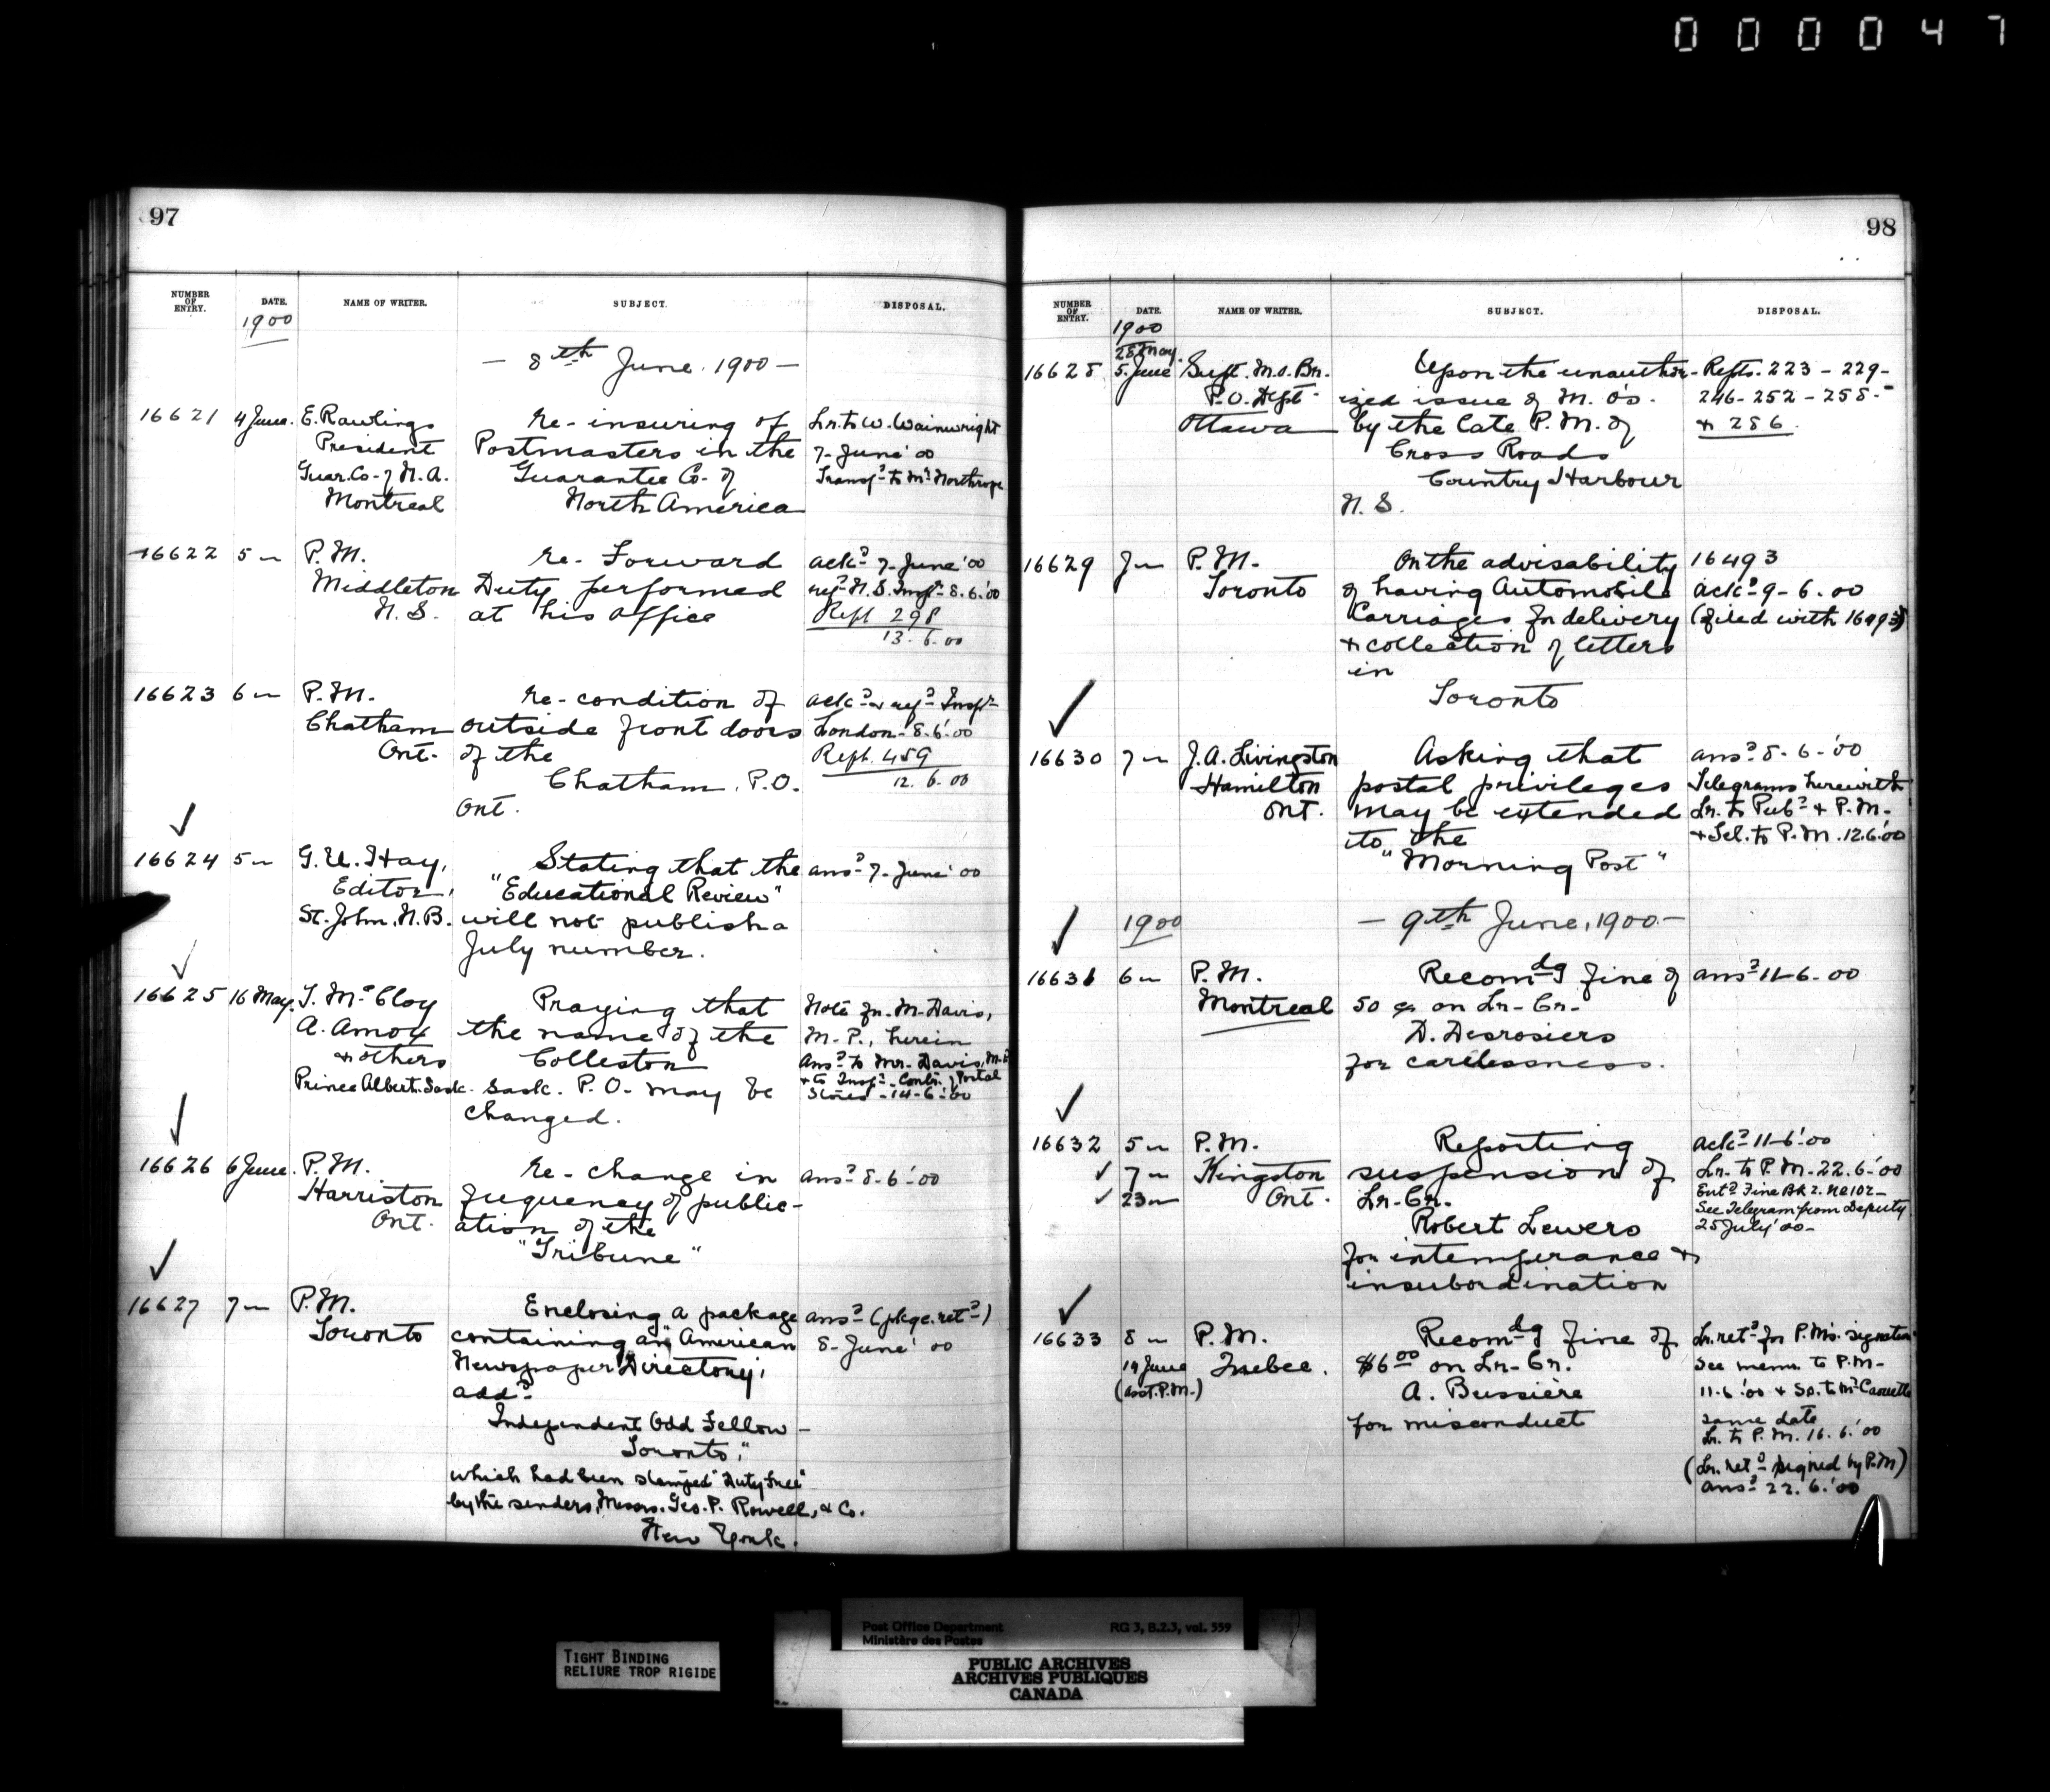 000047
97
NUMBER OF ENTRY. DATE. NAME OF WRITER. SUBJECT. DISPOSAL.
1900
— 8th June. 1900 —
16621 4 June. E. Rawlings Re-insuring of Lr. to W. Wainwright
President Postmasters in the 7-June '00
Guar. Co- of N. A. Guarantee Co- of Transfd to Mr Northrope
Montreal North America
16622 5 " P. M. Re- Forward ackd 7-June '00
Middleton Duty performed refd N. S. Inspr 8.6.'00
N. S. at his office Rept 298
13. 6. 00
16623 6 " P. M. Re-condition of ackd & refd Inspr
Chatham outside front doors London- 8.6.'00
Ont. of the Rept. 459
Chatham. P.O. 12. 6. 00
Ont.
16624 5 " G. U. Hay, Stating that the ansd 7-June '00
Editor, "Educational Review"
St. John, N.B. will not publish a
July number.
16625 16 May. T. McCloy Praying that Note fr. Mr. Davis,
A. Amox the name of the M. P., herein
& others Colleston Ansd to Mr. Davis, M.P.
Prince Albert. Sask. Sask. P. O. may be & to Inspr Contr. of Postal
changed. Stores -14-6-'00
16626 6 June. P. M. Re- change in ansd 8-6-'00
Harriston frequency of public-
Ont. ation of the
"Tribune"
16627 7 " P. M. Enclosing a package ansd (pkge. retd)
Toronto containing an "American 8-June '00
Newspaper Directory;
addd
Independent Odd Fellow –
Toronto;"
which had been stamped "Duty Free"
by the senders, Messrs. Geo. P. Rowell, & Co.
New York.
98
NUMBER OF ENTRY. DATE. NAME OF WRITER. SUBJECT. DISPOSAL.
1900
28 May.
16628 5. June Supt. M.O. Bn. Upon the unauthor- Repts. 223 - 229 -
P.O. Dept. ized issue of M. O's. 246 - 252 - 255 -
Ottawa by the late P. M. of & 256.
Cross Roads
Country Harbour
N. S.
16629 7 " P. M. On the advisability 16493
Toronto of having Automobile ackd 9-6.00
Carriages for delivery (filed with 16493)
& collection of letters
in
Toronto
16630 7 " J. A. Livingston Asking that ansd 8-6-'00
Hamilton postal privileges Telegrams herewith
Ont. may be extended Lr. to Pubr & P. M.
to the & Tel. to P. M. 12.6.'00
"Morning Post"
1900 — 9th June, 1900. —
16631 6 " P. M. Recomdg fine of ansd 11-6-00
Montreal 50 cs on Lr-Cr.
D. Desrosiers
for carelessness.
16632 5 " P. M. Reporting ackd 11-6-'00
7 " Kingston suspension of Lr. to P. M. 22.6.'00
23 " Ont. Lr-Cr. Entd Fine Bk 2. No 102 –
Robert Lewers See Telegram from Deputy
for intemperance & 25 July '00 –
insubordination
16633 8 " P. M. Recomdg fine of Lr. retd for P.M's. signature
19 June Quebec. $6.00 on Lr-Cr. See memo. to P. M –
(asst. P.M.) A. Bussière 11.6.'00
for misconduct same date
Lr. to P. M. 16. 6.'00
(Lr. retd signed by P.M)
ansd 22. 6.'00
Post Office Department RG 3, B.2.3, vol. 559
Ministère des Postes
TIGHT BINDING
RELIURE TROP RIGIDE
PUBLIC ARCHIVES
ARCHIVES PUBLIQUES
CANADA